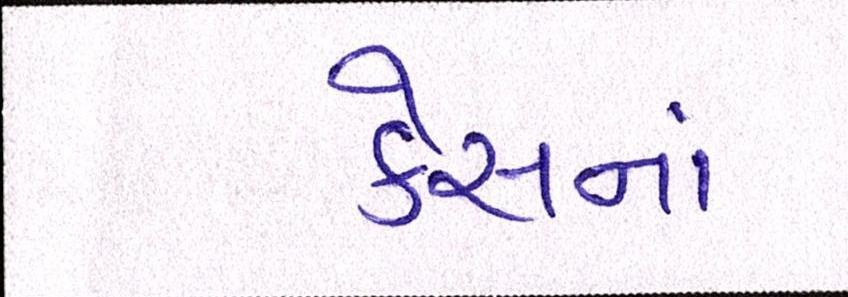 કેસનાં